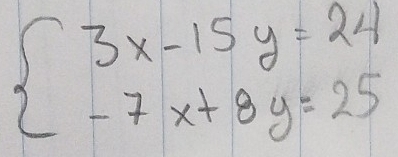 3x-15y=24
-7x+8y=25